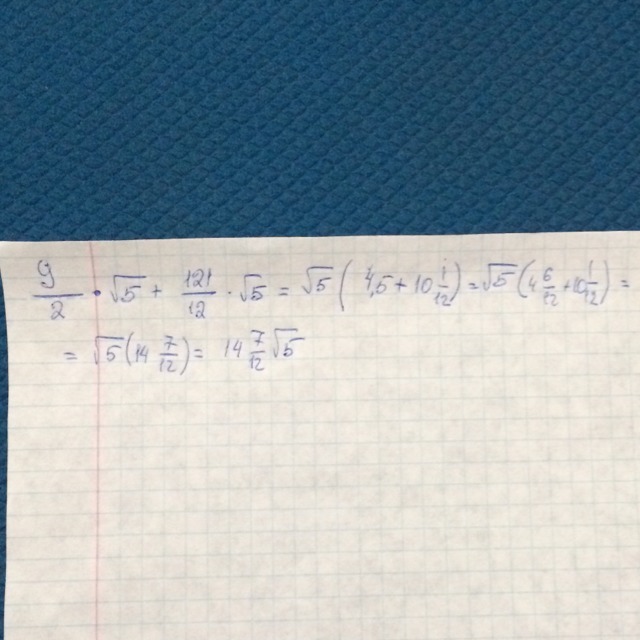 9/2 · √5 + 121/12 · √5 = √5 ( 4,5 + 10 1/12 ) = √5 ( 4 6/12 + 10 1/12 ) =
= √5 ( 14 7/12 ) = 14 7/12 √5